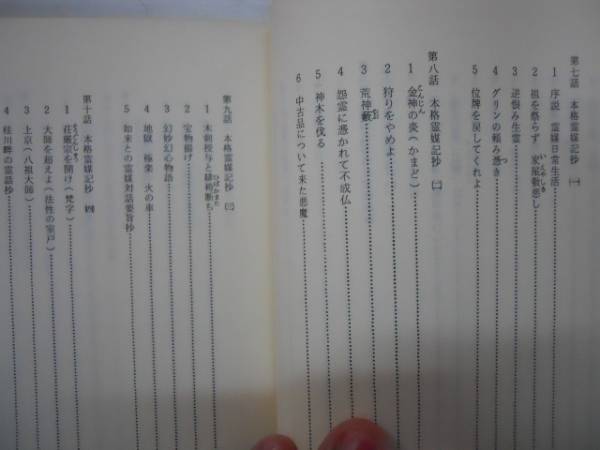 第七話 本格霊媒記抄 (一)
1 序説 霊媒日常生活
2 祖を祭らず 家屋敷悪し
いえやしき
3 逆恨み生霊
4 グリンの頼み憑き
つ
5 位牌を戻してくれよ
第八話 本格霊媒記抄 (二)
1 金神の炎(かまど)
こんじん
2 狩りをやめよ
3 荒神藪
やぶ
4 怨霊に憑かれて不成仏
5 神木を伐る
6 中古品について来た悪魔
第九話 本格霊媒記抄 (三)
1 木剣授与と緋袴断ち
ひばかまた
2 宝物揚げ
3 幻妙幻心物語
4 地獄 極楽 火の車
5 如来との霊媒対話要旨抄
第十話 本格霊媒記抄 (四)
1 荘厳宗を開け(梵字)
2 大師を超えよ(法性の室戸)
3 上京(八祖大師)
4 桂川畔の霊話抄